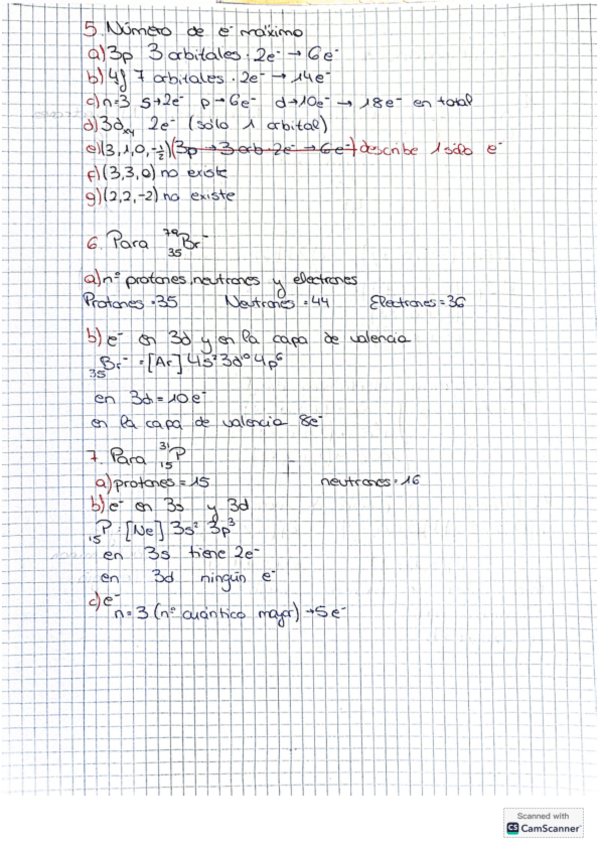 5. Número de e⁻ máximo
a) 3p 3 orbitales · 2e⁻ → 6e⁻
b) 4f 7 orbitales · 2e⁻ → 14e⁻
c) n=3 s→2e⁻ p→6e⁻ d→10e⁻ → 18e⁻ en total
d) 3dxy 2e⁻ (sólo 1 orbital)
e) (3,1,0,-½) (3p → 3 orb · 2e⁻ → 6e⁻) describe 1 sólo e⁻
f) (3,3,0) no existe
g) (2,2,-2) no existe
6. Para ⁷⁹₃₅Br⁻
a) nº protones, neutrones y electrones
Protones = 35 Neutrones = 44 Electrones = 36
b) e⁻ en 3d y en la capa de valencia
₃₅Br⁻ = [Ar] 4s² 3d¹⁰ 4p⁶
en 3d = 10e⁻
en la capa de valencia 8e⁻
7. Para ³¹₁₅P
a) protones = 15 neutrones = 16
b) e⁻ en 3s y 3d
₁₅P : [Ne] 3s² 3p³
en 3s tiene 2e⁻
en 3d ningún e⁻
c) e⁻
n = 3 (nº cuántico mayor) → 5e⁻
Scanned with
CS CamScanner